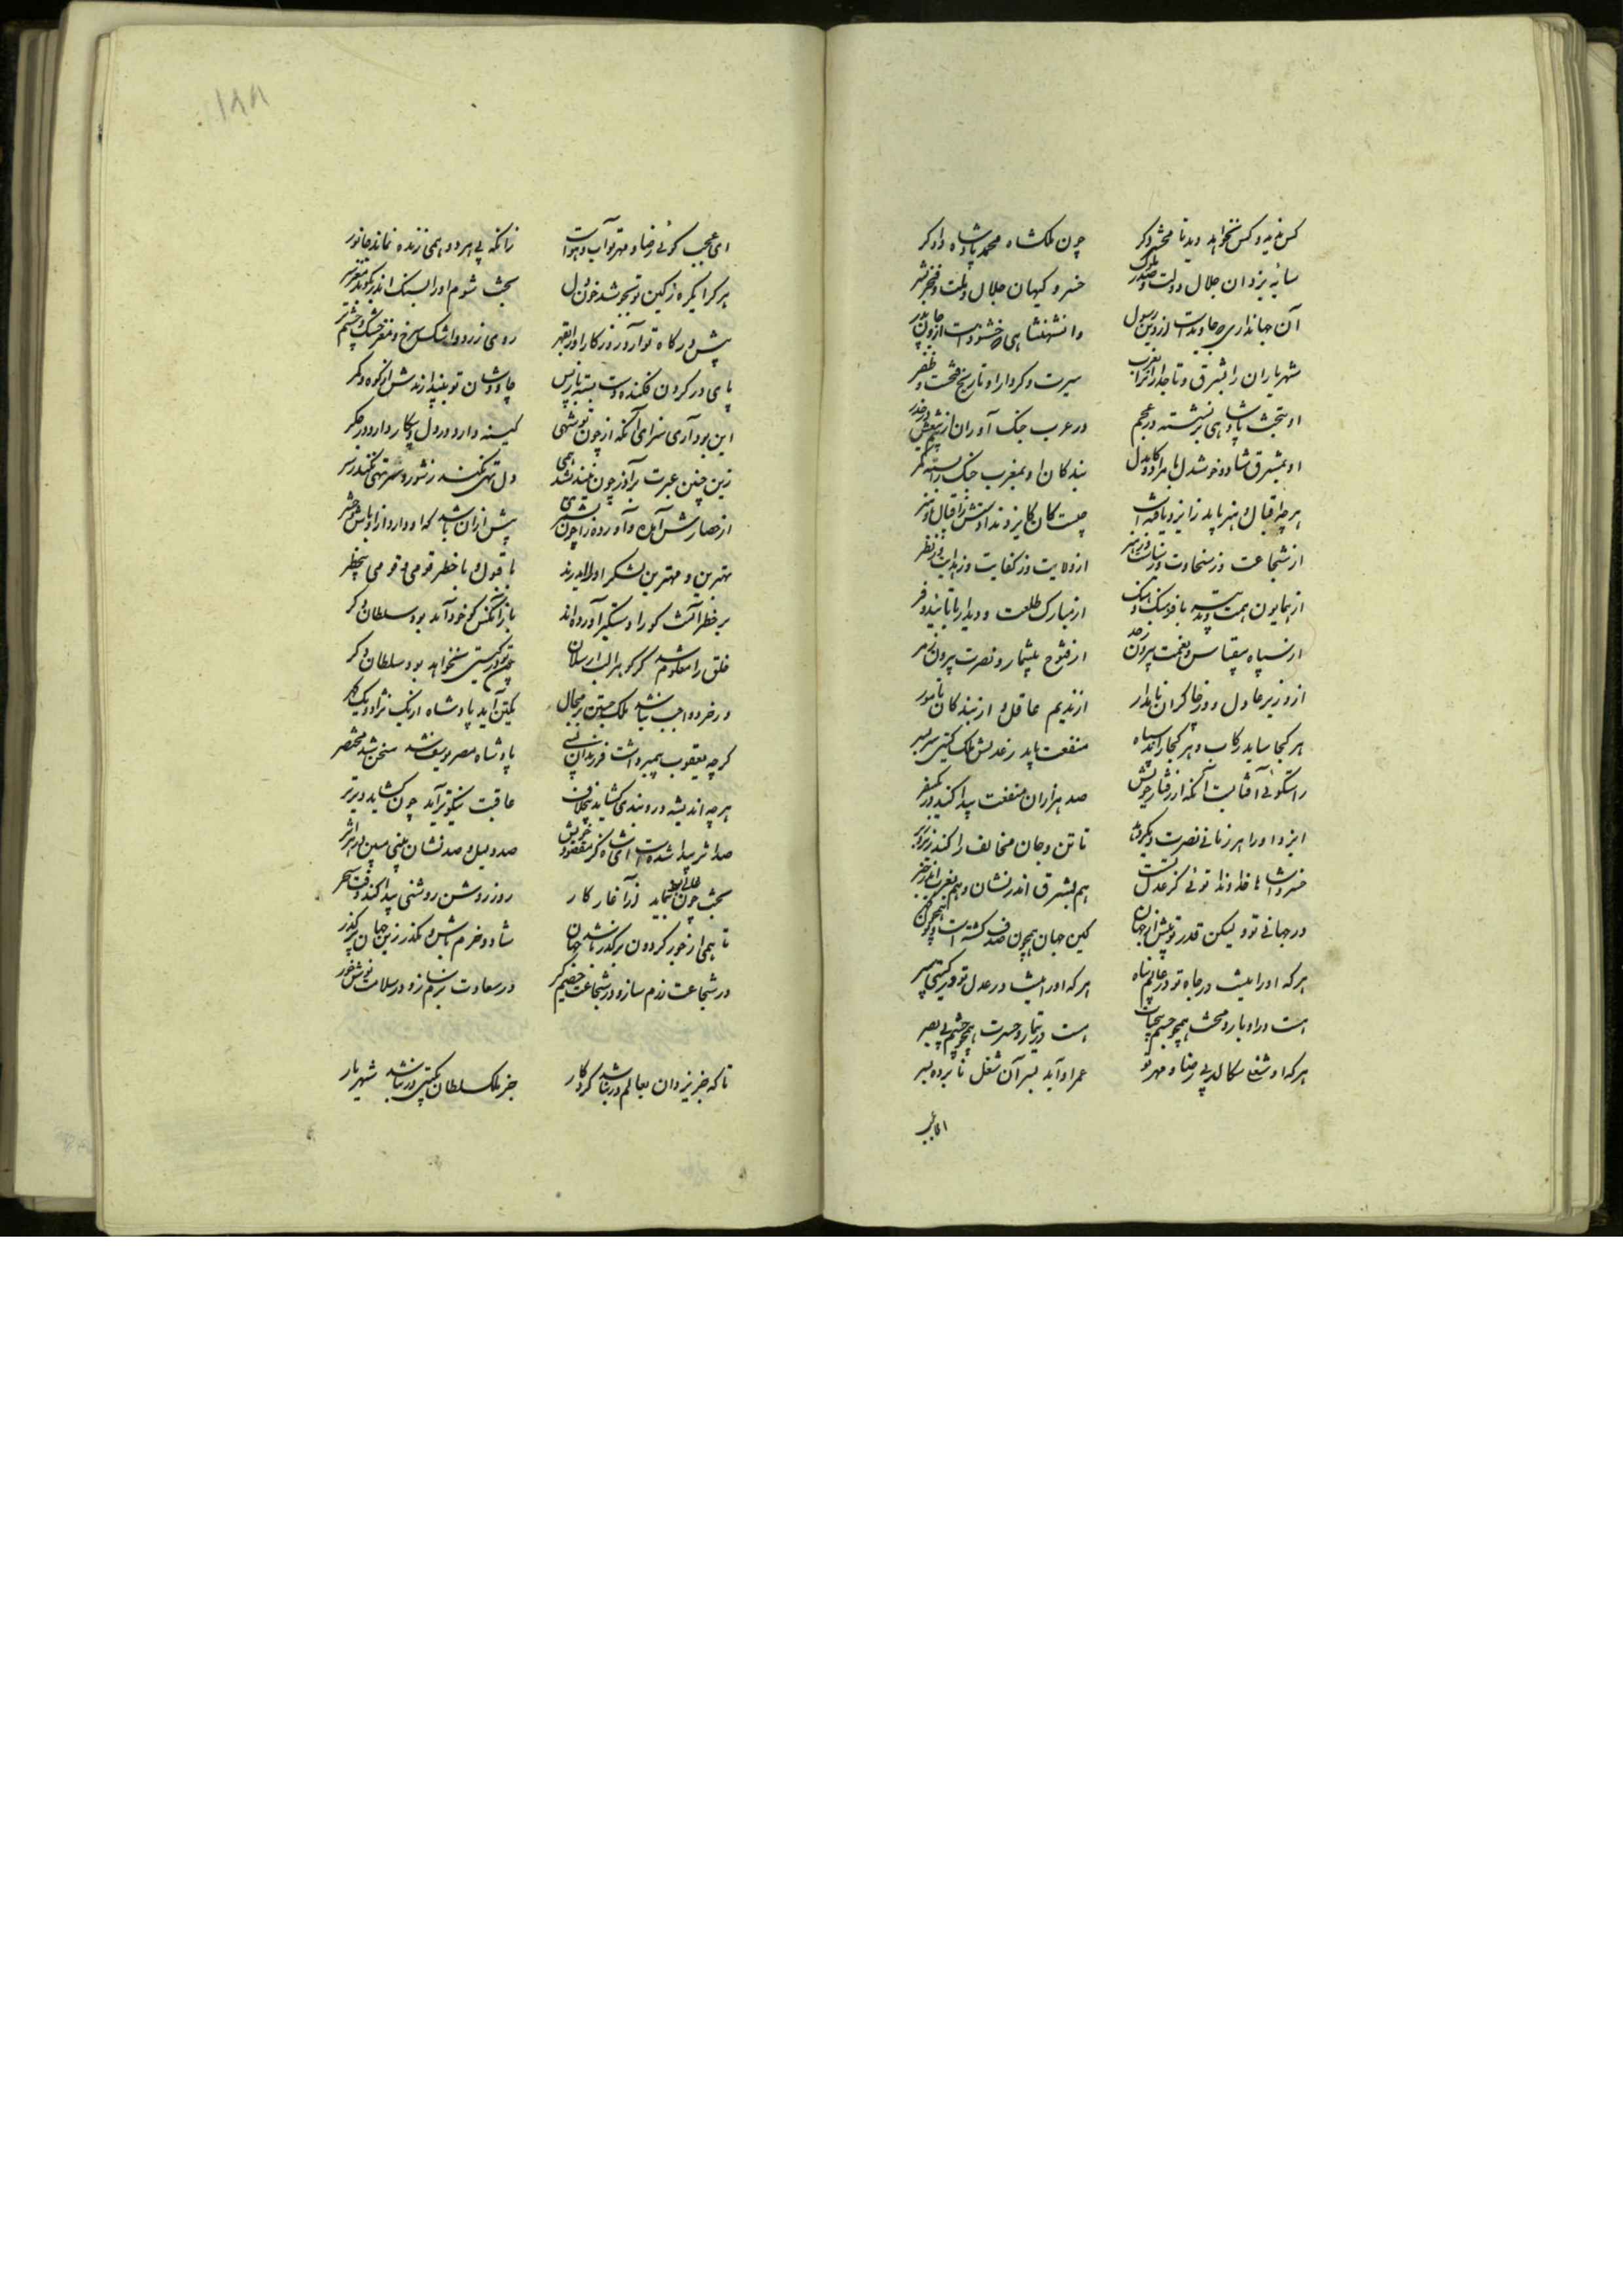 کس ندید و کس نخواهد دید تا محشر دگر چون ملکشاه محمد پادشاه دادگر
سایه یزدان جلال دولت و صدر ملوک خسرو کیهان جلال ملت و فخر بشر
آن جهانداری که جاویدست ازو دین رسول وان شهنشاهی که خشنودست ازو جان پدر
شهریاران را بشرق و تاجداران را بغرب سیرت و کردار او تاریخ فتحست و ظفر
او بتخت پادشاهی برنشسته در عجم در عرب جنک آوران از بیم تیغش در حذر
او بمشرق شاد و خوشدل با مراد و کام دل بندکان او بمغرب جنک را بسته کمر
هر چه اقبال و هنر باید ز ایزد یافه است چیست کان کایزد ندادش ز اقبال و هنر
از شجاعت وز سخاوت وز سیاست وز هنر از ولایت وز کفایت وز هدایت وز نظر
از همایون همت و پیوسته با فرهنک و هنک از مبارک طلعت و دیدار با تایید و فر
از سپاه بیقیاس و نعمت بیرون ز حد از فتوح بیشمار و نصرت بیرون ز مر
از وزیر عادل و وز چاکران نامدار از ندیم عاقل و از بندکان نامور
هر کجا ساید رکاب و هر کجا راند سپاه منفعت یابد ز عدلش ملک کیتی سربسر
راستکوئی آفتابست آنکه از رفتار خویش صد هزاران منفعت پیدا کند در یکسفر
ایزد او را هر زمانی نصرت دیکر دهد تا تن و جان مخالف را کند زیر و زبر
خسروا شاها خداوندا توئی کز عدل تست هم بشرق اندر نشان و هم بغرب اندر خبر
در جهانی تو ولیکن قدر تو بیش از جهان کاین جهان همچون صدف کشته است و تو همچون کهر
هر که او را نیست در جاه تو در عالم پناه هر که او را نیست در عدل تو در کیتی سپر
هست در ادبار و محنت همچو جسم بی روان هست در تیمار و حسرت همچو چشم بی بصر
هر که او شغلی سکالد بی رضا و مهر تو عمر او آید بسر آن شغل نابرده بسر
ای عجب
۱۸۸
ای عجب کوئی رضا و مهر تو آب و هواست زانکه بی هر دو همی زنده نماند جانور
هر کرا یکره ز کین تو بجوشد خون دل بخت شوم او را بسنک اندر بکوبد مغز سر
پیش درکاه تو آرد روزکار او را بقهر روی زرد و اشک سرخ و مغز خشک و چشم تر
پای در کردن فکنده دست بسته باز پس چاوشان تو بیندازندش از کوه و کمر
این بود آری سزای آنکه از چون تو شهی کینه دارد در دل و پیکار دارد در جکر
زین چنین عبرت برآور چون نیندیشد همی دل تهی نکند ز شور و سر تهی نکند ز شر
از حصارش آمد و آورده را چون بشمری بیش ازان باشد که او دارد ازو باش و حشر
بهترین و مهترین لشکر او را ایدرند با قبول و با خطر قومی و قومی بیخطر
بر خطر آنست کو را دستکیر آورده اند باز آنکس کو خود آمد بود سلطان دکر
خلق را معلوم شد کز کوهر الب ارسلان جز تو در کیتی نخواهد بود سلطان دکر
در خرد واجب نباشد ملک جستن بر محال یک تن آید پادشاه از یک نژاد و یک کهر
کرچه یعقوب پیمبر داشت فرزندان بسی پادشاه مصر یوسف شد سخن شد مختصر
هر چه اندیشه در او بندی کشاید بیخلاف عاقبت نیکوتر آید چون کشاید دیرتر
صد اثر پیدا شدست ای شاه کز مقصود خویش صد دلیل و صد نشان بینی ببین در هر اثر
بخت چون عالی بود بنماید از آغاز کار روز روشن روشنی پیدا کند وقت سحر
تا همی از خور کردون برکذر باشد جهان شاد و خرم باش و مکذر زین جهان برکذر
در شجاعت رزم ساز و در شجاعت خصم کیر در سعادت بزم ساز و در سلامت نوش خور
تا که جز یزدان بعالم در نباشد کردکار جز ملک سلطان بکیتی در نباشد شهریار